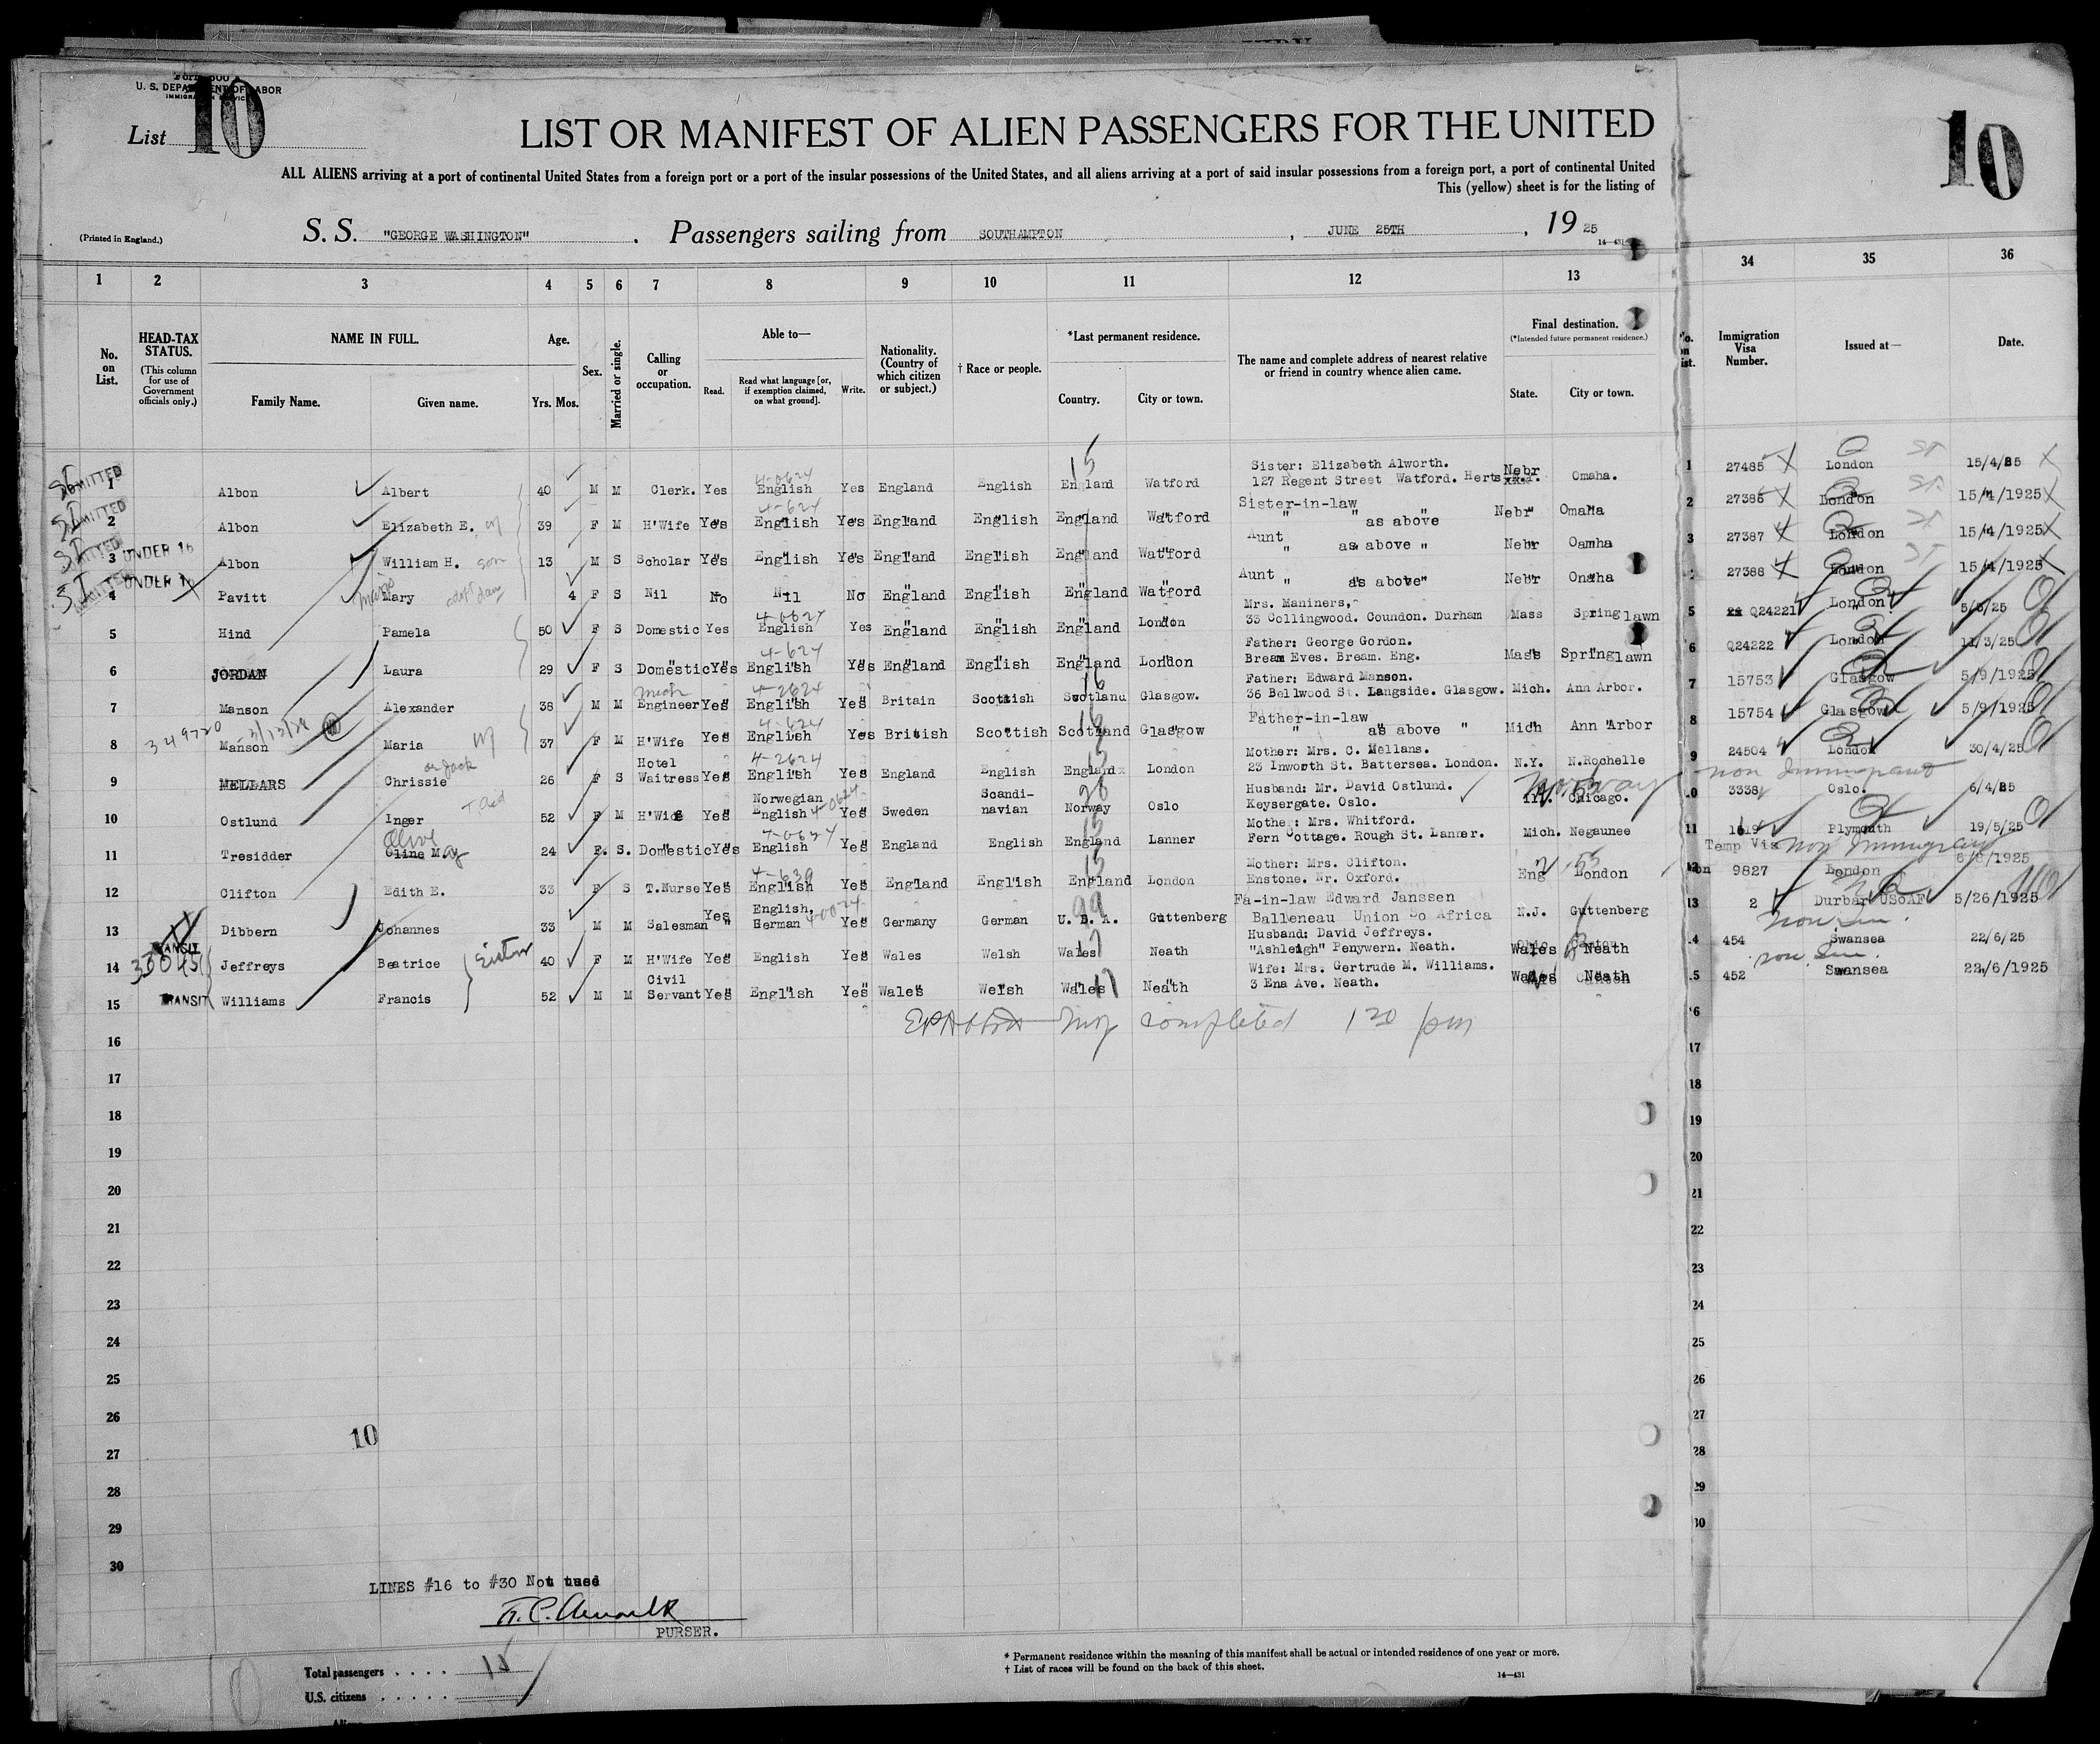 U. S. DEPARTMENT OF LABOR
IMMIGRATION SERVICE
List 10
10
LIST OR MANIFEST OF ALIEN PASSENGERS FOR THE UNITED
ALL ALIENS arriving at a port of continental United States from a foreign port or a port of the insular possessions of the United States, and all aliens arriving at a port of said insular possessions from a foreign port, a port of continental United
This (yellow) sheet is for the listing of
(Printed in England.)
S. S. "GEORGE WASHINGTON" . Passengers sailing from SOUTHAMPTON , JUNE 25TH , 19 25
14-431
1 2 3 4 5 6 7 8 9 10 11 12 13 34 35 36
No. on List.
HEAD-TAX STATUS.
(This column for use of Government officials only.)
NAME IN FULL.
Family Name. Given name.
Age.
Yrs. Mos.
Sex.
Married or single.
Calling or occupation.
Able to—
Read. Read what language [or, if exemption claimed, on what ground]. Write.
Nationality. (Country of which citizen or subject.)
† Race or people.
*Last permanent residence.
Country. City or town.
The name and complete address of nearest relative or friend in country whence alien came.
Final destination.
(*Intended future permanent residence.)
State. City or town.
Immigration Visa Number. Issued at— Date.
1 Albon Albert 40 M M Clerk. Yes English Yes England English England Watford Sister: Elizabeth Alworth. 127 Regent Street Watford. Herts Nebr Omaha. 1 27485 London 15/4/25
2 Albon Elizabeth E. 39 F M H'Wife Yes English Yes England English England Watford Sister-in-law " " as above Nebr Omaha 2 27386 London 15/4/1925
3 UNDER 16 Albon William H. son 13 M S Scholar Yes English Yes England English England Watford Aunt " as above " Nebr Oamha 3 27387 London 15/4/1925
4 UNDER 16 Pavitt Mary 4 F S Nil No Nil No England English England Watford Aunt " as above" Nebr Omaha 27388 London 15/4/1925
5 Hind Pamela 50 F S Domestic Yes English Yes England English England London Mrs. Maniners, 33 Collingwood. Coundon. Durham Mass Spring lawn 5 Q24221 London. 5/5/25
6 JORDAN Laura 29 F S Domestic Yes English Yes England English England London Father: George Gordon. Bream Eves. Bream. Eng. Mass Spring lawn 6 Q24222 London 11/3/25
7 Manson Alexander 38 M M Engineer Yes English Yes Britain Scottish Scotland Glasgow. Father: Edward Manson. 36 Bellwood St. Langside. Glasgow. Mich. Ann Arbor. 7 15753 Glasgow 5/9/1925
349720
8 Manson Maria 37 F M H'Wife Yes English Yes British Scottish Scotland Glasgow Father-in-law " as above " Mich Ann Arbor 8 15754 Glasgow 5/9/1925
9 MELLARS Chrissie 26 F S Hotel Waitress Yes English Yes England English England London Mother: Mrs. C. Mellans. 23 Inworth St. Battersea. London. N.Y. N.Rochelle 9 24504 London 30/4/25
Norway non Immigrant
10 Ostlund Inger 52 F M H'Wife Yes Norwegian English Yes Sweden Scandi-navian Norway Oslo Husband: Mr. David Ostlund. Keysergate. Oslo. Ill. Chicago. 3338 Oslo. 6/4/25
11 Tresidder Olive 24 F. S. Domestic Yes English Yes England English England Lanner Mother: Mrs. Whitford. Fern Cottage. Rough St. Lanner. Mich. Negaunee 11 Plymouth 19/5/25
Temp Vis non Immigrant
12 Clifton Edith E. 33 F S T.Nurse Yes English Yes England English England London Mother: Mrs. Clifton. Enstone. Nr. Oxford. Eng London 9827 London 6/6/1925
13 Dibbern Johannes 33 M M Salesman Yes " English, German Yes Germany German U. S. A. Guttenberg Fa-in-law Edward Janssen Balleneau Union So Africa N.J. Guttenberg 13 2 Durban USoAF 5/26/1925
14 TRANSIT Jeffreys Beatrice Sister 40 F M H'Wife Yes English Yes Wales Welsh Wales Neath Husband: David Jeffreys. "Ashleigh" Penywern. Neath. Wales Neath 454 Swansea 22/6/25
15 TRANSIT Williams Francis 52 M M Civil Servant Yes English Yes Wales Welsh Wales Neath Wife: Mrs. Gertrude M. Williams. 3 Ena Ave. Neath. Wales Neath 452 Swansea 22/6/1925
completed 120 pm
16
17 17
18 18
19 19
20 20
21 21
22 22
23 23
24 24
25 25
26 26
27 27
28 28
29 29
30 30
10
LINES #16 to #30 Not used
PURSER.
Total passengers . . . . 15
U.S. citizens . . . . .
* Permanent residence within the meaning of this manifest shall be actual or intended residence of one year or more.
† List of races will be found on the back of this sheet.
14-431